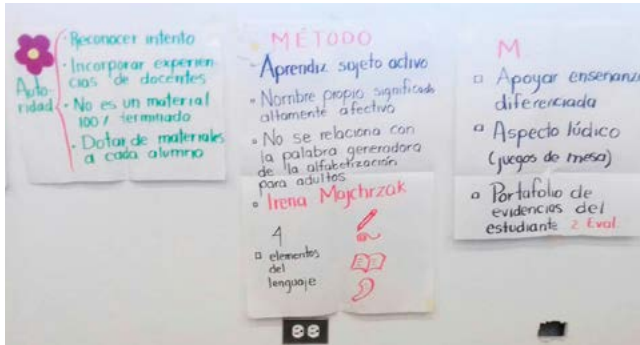 Auto-
ridad
· Reconocer intento
· Incorporar experien-
cias de docentes
· No es un material
100% terminado
· Dotar de materiales
a cada alumno
MÉTODO
· Aprendiz sujeto activo
· Nombre propio significado
altamente afectivo
· No se relaciona con
la palabra generadora
de la alfabetización
para adultos
· Irena Majchrzak
4
elementos
del
lenguaje
M
Apoyar enseñanza
diferenciada
Aspecto lúdico
(juegos de mesa)
Portafolio de
evidencias del
estudiante 2 Eval